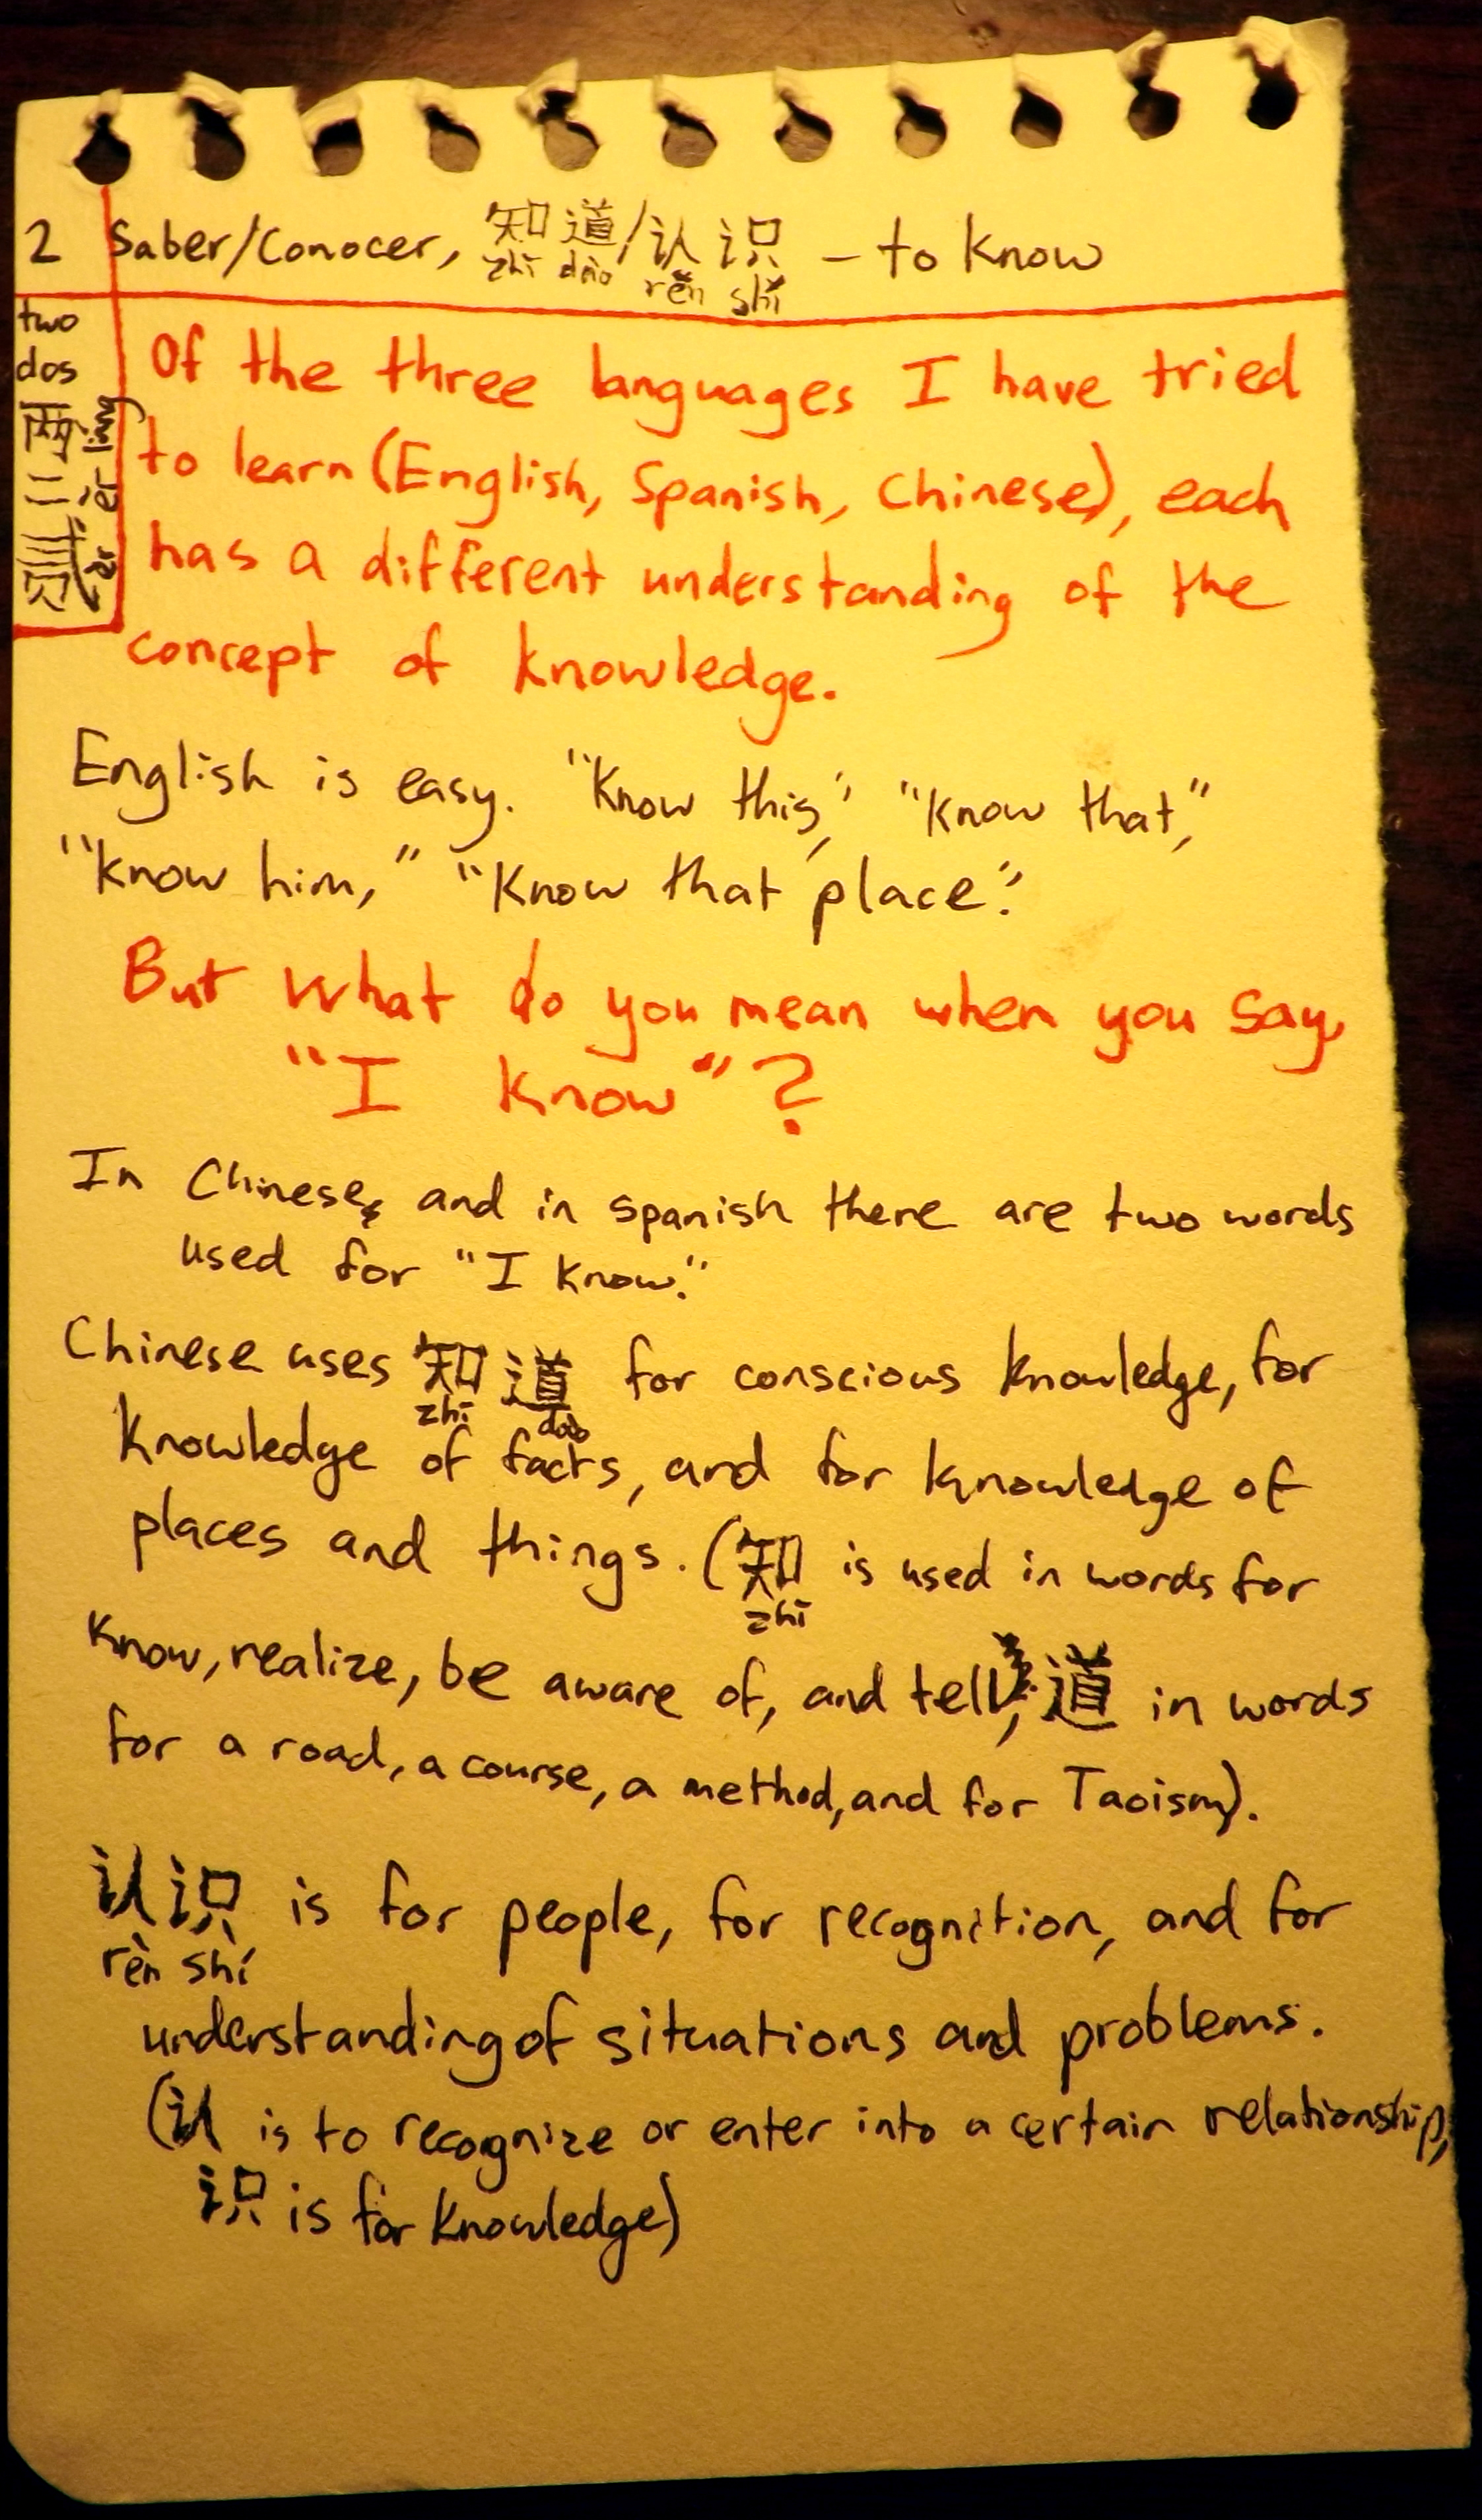 2 Saber/Conocer, 知道/认识 – to know
zhī dào rěn shǐ
two
dos
两 liǎng
二 èr
贰 èr
Of the three languages I have tried
to learn (English, Spanish, Chinese), each
has a different understanding of the
concept of knowledge.
English is easy. "Know this," "Know that,"
"Know him," "Know that place."
But what do you mean when you say,
"I know"?
In Chinese, and in spanish there are two words
used for "I know."
Chinese uses 知道 for conscious knowledge, for
zhī dào
knowledge of facts, and for knowledge of
places and things. (知 is used in words for
zhī
know, realize, be aware of, and tell, 道 in words
for a road, a course, a method, and for Taoism).
认识 is for people, for recognition, and for
rèn shí
understanding of situations and problems.
(认 is to recognize or enter into a certain relationship,
识 is for knowledge)